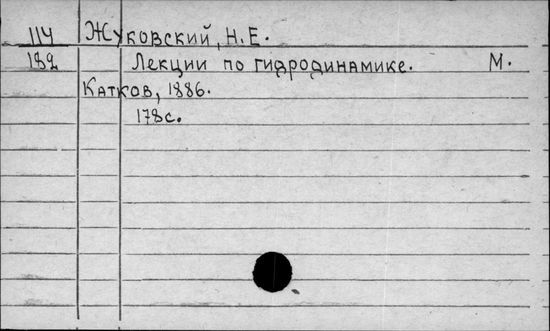 114 Жуковский, Н.Е.
182 Лекции по гидродинамике. М.
Катков, 1886.
178с.